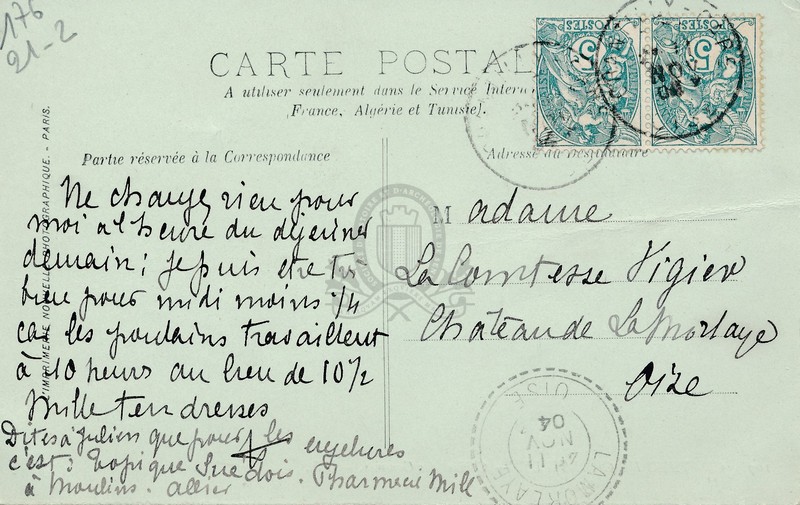 176
21-2
CARTE POSTAL
A utiliser seulement dans le Service Intern
(France, Algérie et Tunisie).
POSTES
5
POSTES
5
Partie réservée à la Correspondance
Adresse du Destinataire
Ne changez rien pour
moi à l'heure du déjeuner
demain; je puis être très
bien pour midi moins 1/4
car les poulains travaillent
à 10 heures au lieu de 10 1/2
Mille tendresses
Dites à Julien que pour les
c'est: Topique
à Moulins. Allier Pharmacie
Madame
La Comtesse Vigier
Château de La Morlaye
Oise
L'IMPRIMERIE NOUVELLE PHOTOGRAPHIQUE. - PARIS.
LAMORLAYE
11
NOV
04
OISE